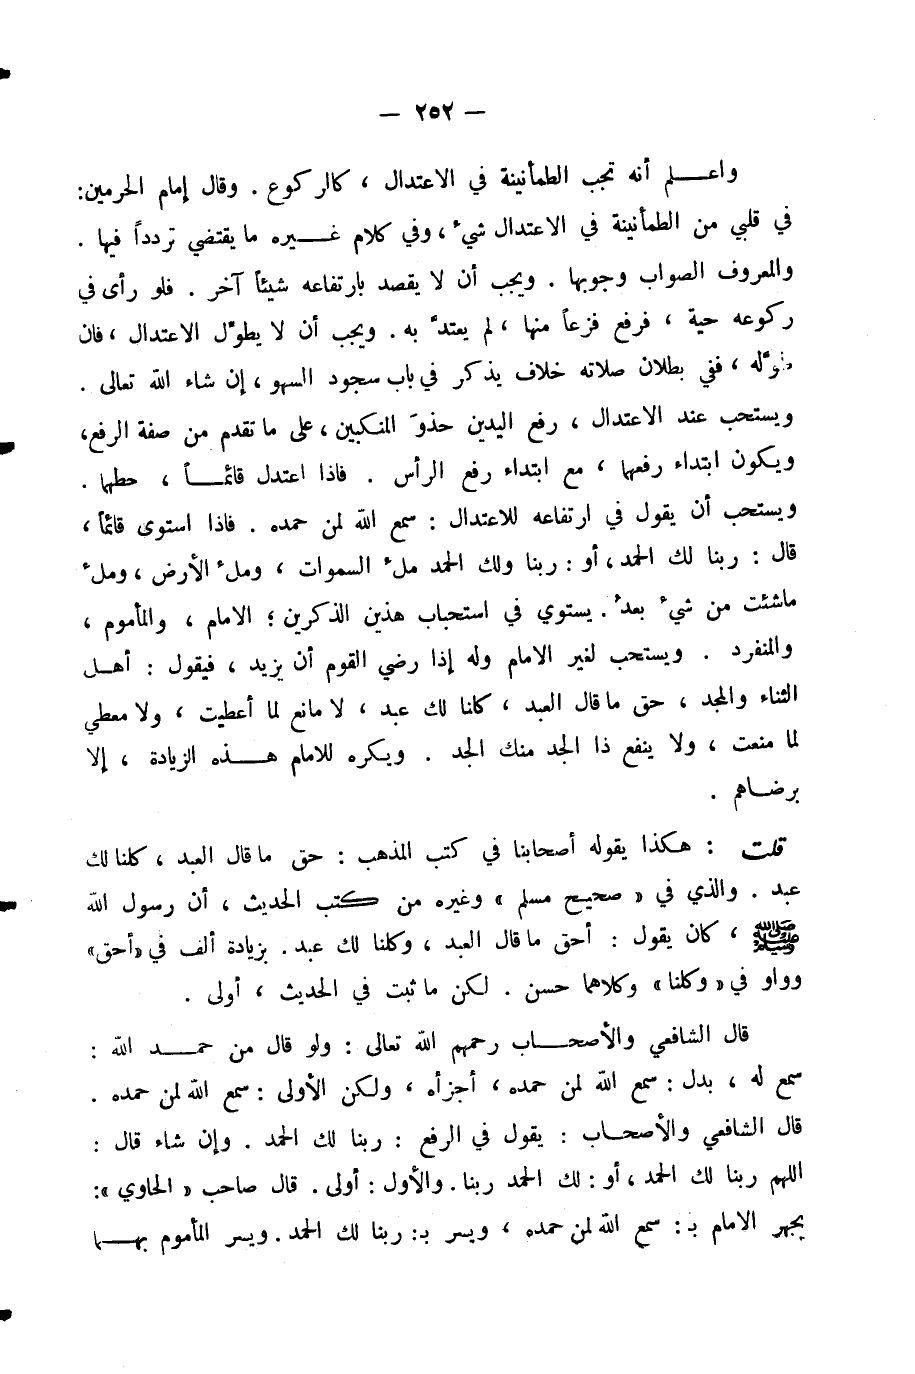 — ٢٥٢ —
واعـــلم أنه تجب الطمأنينة في الاعتدال ، كالركوع . وقال إمام الحرمين:
في قلبي من الطمأنينة في الاعتدال شيءٌ ، وفي كلام غـــيره ما يقتضي تردداً فيها .
والمعروف الصواب وجوبها . ويجب أن لا يقصد بارتفاعه شيئاً آخر . فلو رأى في
ركوعه حية ، فرفع فزعاً منها ، لم يعتدَّ به . ويجب أن لا يطوِّل الاعتدال ، فان
طوَّله ، ففي بطلان صلاته خلاف يذكر في باب سجود السهو ، إن شاء الله تعالى .
ويستحب عند الاعتدال ، رفع اليدين حذوَ المنكبين ، على ما تقدم من صفة الرفع،
ويكون ابتداء رفعها ، مع ابتداء رفع الرأس . فاذا اعتدل قائمـــاً ، حطها .
ويستحب أن يقول في ارتفاعه للاعتدال : سمع الله لمن حمده . فاذا استوى قائماً ،
قال : ربنا لك الحمد ، أو : ربنا ولك الحمد ملءُ السموات ، وملءُ الأرض ، وملءُ
ماشئت من شيءٍ بعدُ . يستوي في استحباب هذين الذكرين ؛ الامام ، والمأموم ،
والمنفرد . ويستحب لغير الامام وله إذا رضي القوم أن يزيد ، فيقول : أهـل
الثناء والمجد ، حق ما قال العبد ، كلنا لك عبد ، لا مانع لما أعطيت ، ولا معطي
لما منعت ، ولا ينفع ذا الجد منك الجد . ويكره للامام هـــذه الزيادة ، إلا
برضـاهم .
قلت : هكذا يقوله أصحابنا في كتب المذهب : حق ما قال العبد ، كلنا لك
عبد . والذي في « صحيح مسلم » وغيره من كتب الحديث ، أن رسول الله
ﷺ ، كان يقول : أحق ما قال العبد ، وكلنا لك عبد . بزيادة ألف في «أحق»
وواو في « وكلنا » وكلاهما حسن . لكن ما ثبت في الحديث ، أولى .
قال الشافعي والأصحـــاب رحمهم الله تعالى : ولو قال من حمـــد الله :
سمع له ، بدل : سمع الله لمن حمده ، أجزأه ، ولكن الأولى : سمع الله لمن حمده .
قال الشافعي والأصحـاب : يقول في الرفع : ربنا لك الحمد . وإن شاء قال :
اللهم ربنا لك الحمد ، أو : لك الحمد ربنا . والأول : أولى . قال صاحب « الحاوي »:
يجهر الامام بـ : سمع الله لمن حمده ، ويسر بـ : ربنا لك الحمد . ويسر المأموم بهـــا